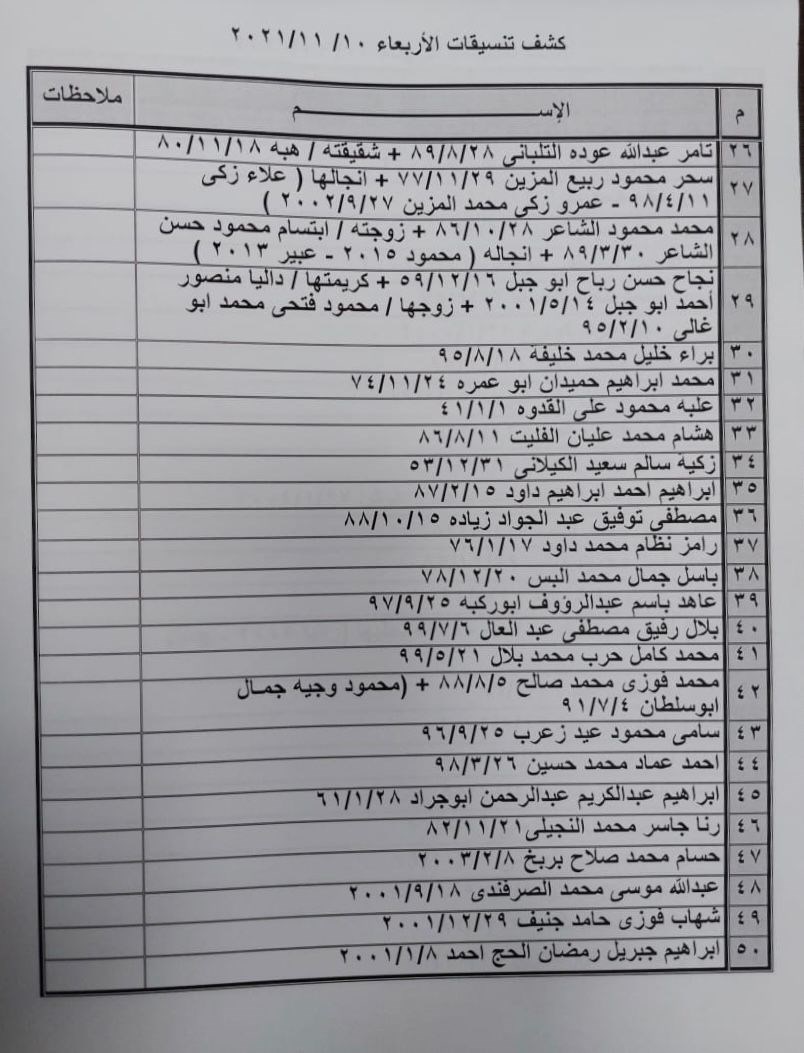 كشف تنسيقات الأربعاء ١٠/ ٢٠٢١/١١
م الإســــــــــــــــم ملاحظات
٢٦ تامر عبدالله عوده التلبانى ٨٩/٨/٢٨ + شقيقته / هبه ٨٠/١١/١٨
٢٧ سحر محمود ربيع المزين ٧٧/١١/٢٩ + انجالها ( علاء زكى
٩٨/٤/١١ - عمرو زكى محمد المزين ٢٠٠٢/٩/٢٧ )
٢٨ محمد محمود الشاعر ٨٦/١٠/٢٨ + زوجته / ابتسام محمود حسن
الشاعر ٨٩/٣/٣٠ + انجاله ( محمود ٢٠١٥ - عبير ٢٠١٣ )
٢٩ نجاح حسن رباح ابو جبل ٥٩/١٢/١٦ + كريمتها / داليا منصور
أحمد ابو جبل ٢٠٠١/٥/١٤ + زوجها / محمود فتحى محمد ابو
غالى ٩٥/٢/١٠
٣٠ براء خليل محمد خليفة ٩٥/٨/١٨
٣١ محمد ابراهيم حميدان ابو عمره ٧٤/١١/٢٤
٣٢ علبه محمود على القدوه ٤١/١/١
٣٣ هشام محمد عليان الفليت ٨٦/٨/١١
٣٤ زكية سالم سعيد الكيلانى ٥٣/١٢/٣١
٣٥ ابراهيم احمد ابراهيم داود ٨٧/٢/١٥
٣٦ مصطفى توفيق عبد الجواد زياده ٨٨/١٠/١٥
٣٧ رامز نظام محمد داود ٧٦/١/١٧
٣٨ باسل جمال محمد البس ٧٨/١٢/٢٠
٣٩ عاهد باسم عبدالرؤوف ابوركبه ٩٧/٩/٢٥
٤٠ بلال رفيق مصطفى عبد العال ٩٩/٧/٦
٤١ محمد كامل حرب محمد بلال ٩٩/٥/٢١
٤٢ محمد فوزى محمد صالح ٨٨/٨/٥ + (محمود وجيه جمـال
ابوسلطان ٩١/٧/٤
٤٣ سامى محمود عيد زعرب ٩٦/٩/٢٥
٤٤ احمد عماد محمد حسين ٩٨/٣/٢٦
٤٥ ابراهيم عبدالكريم عبدالرحمن ابوجراد ٦١/١/٢٨
٤٦ رنا جاسر محمد النجيلى ٨٢/١١/٢١
٤٧ حسام محمد صلاح بربخ ٢٠٠٣/٢/٨
٤٨ عبدالله موسى محمد الصرفندى ٢٠٠١/٩/١٨
٤٩ شهاب فوزى حامد جنيف ٢٠٠١/١٢/٢٩
٥٠ ابراهيم جبريل رمضان الحج احمد ٢٠٠١/١/٨